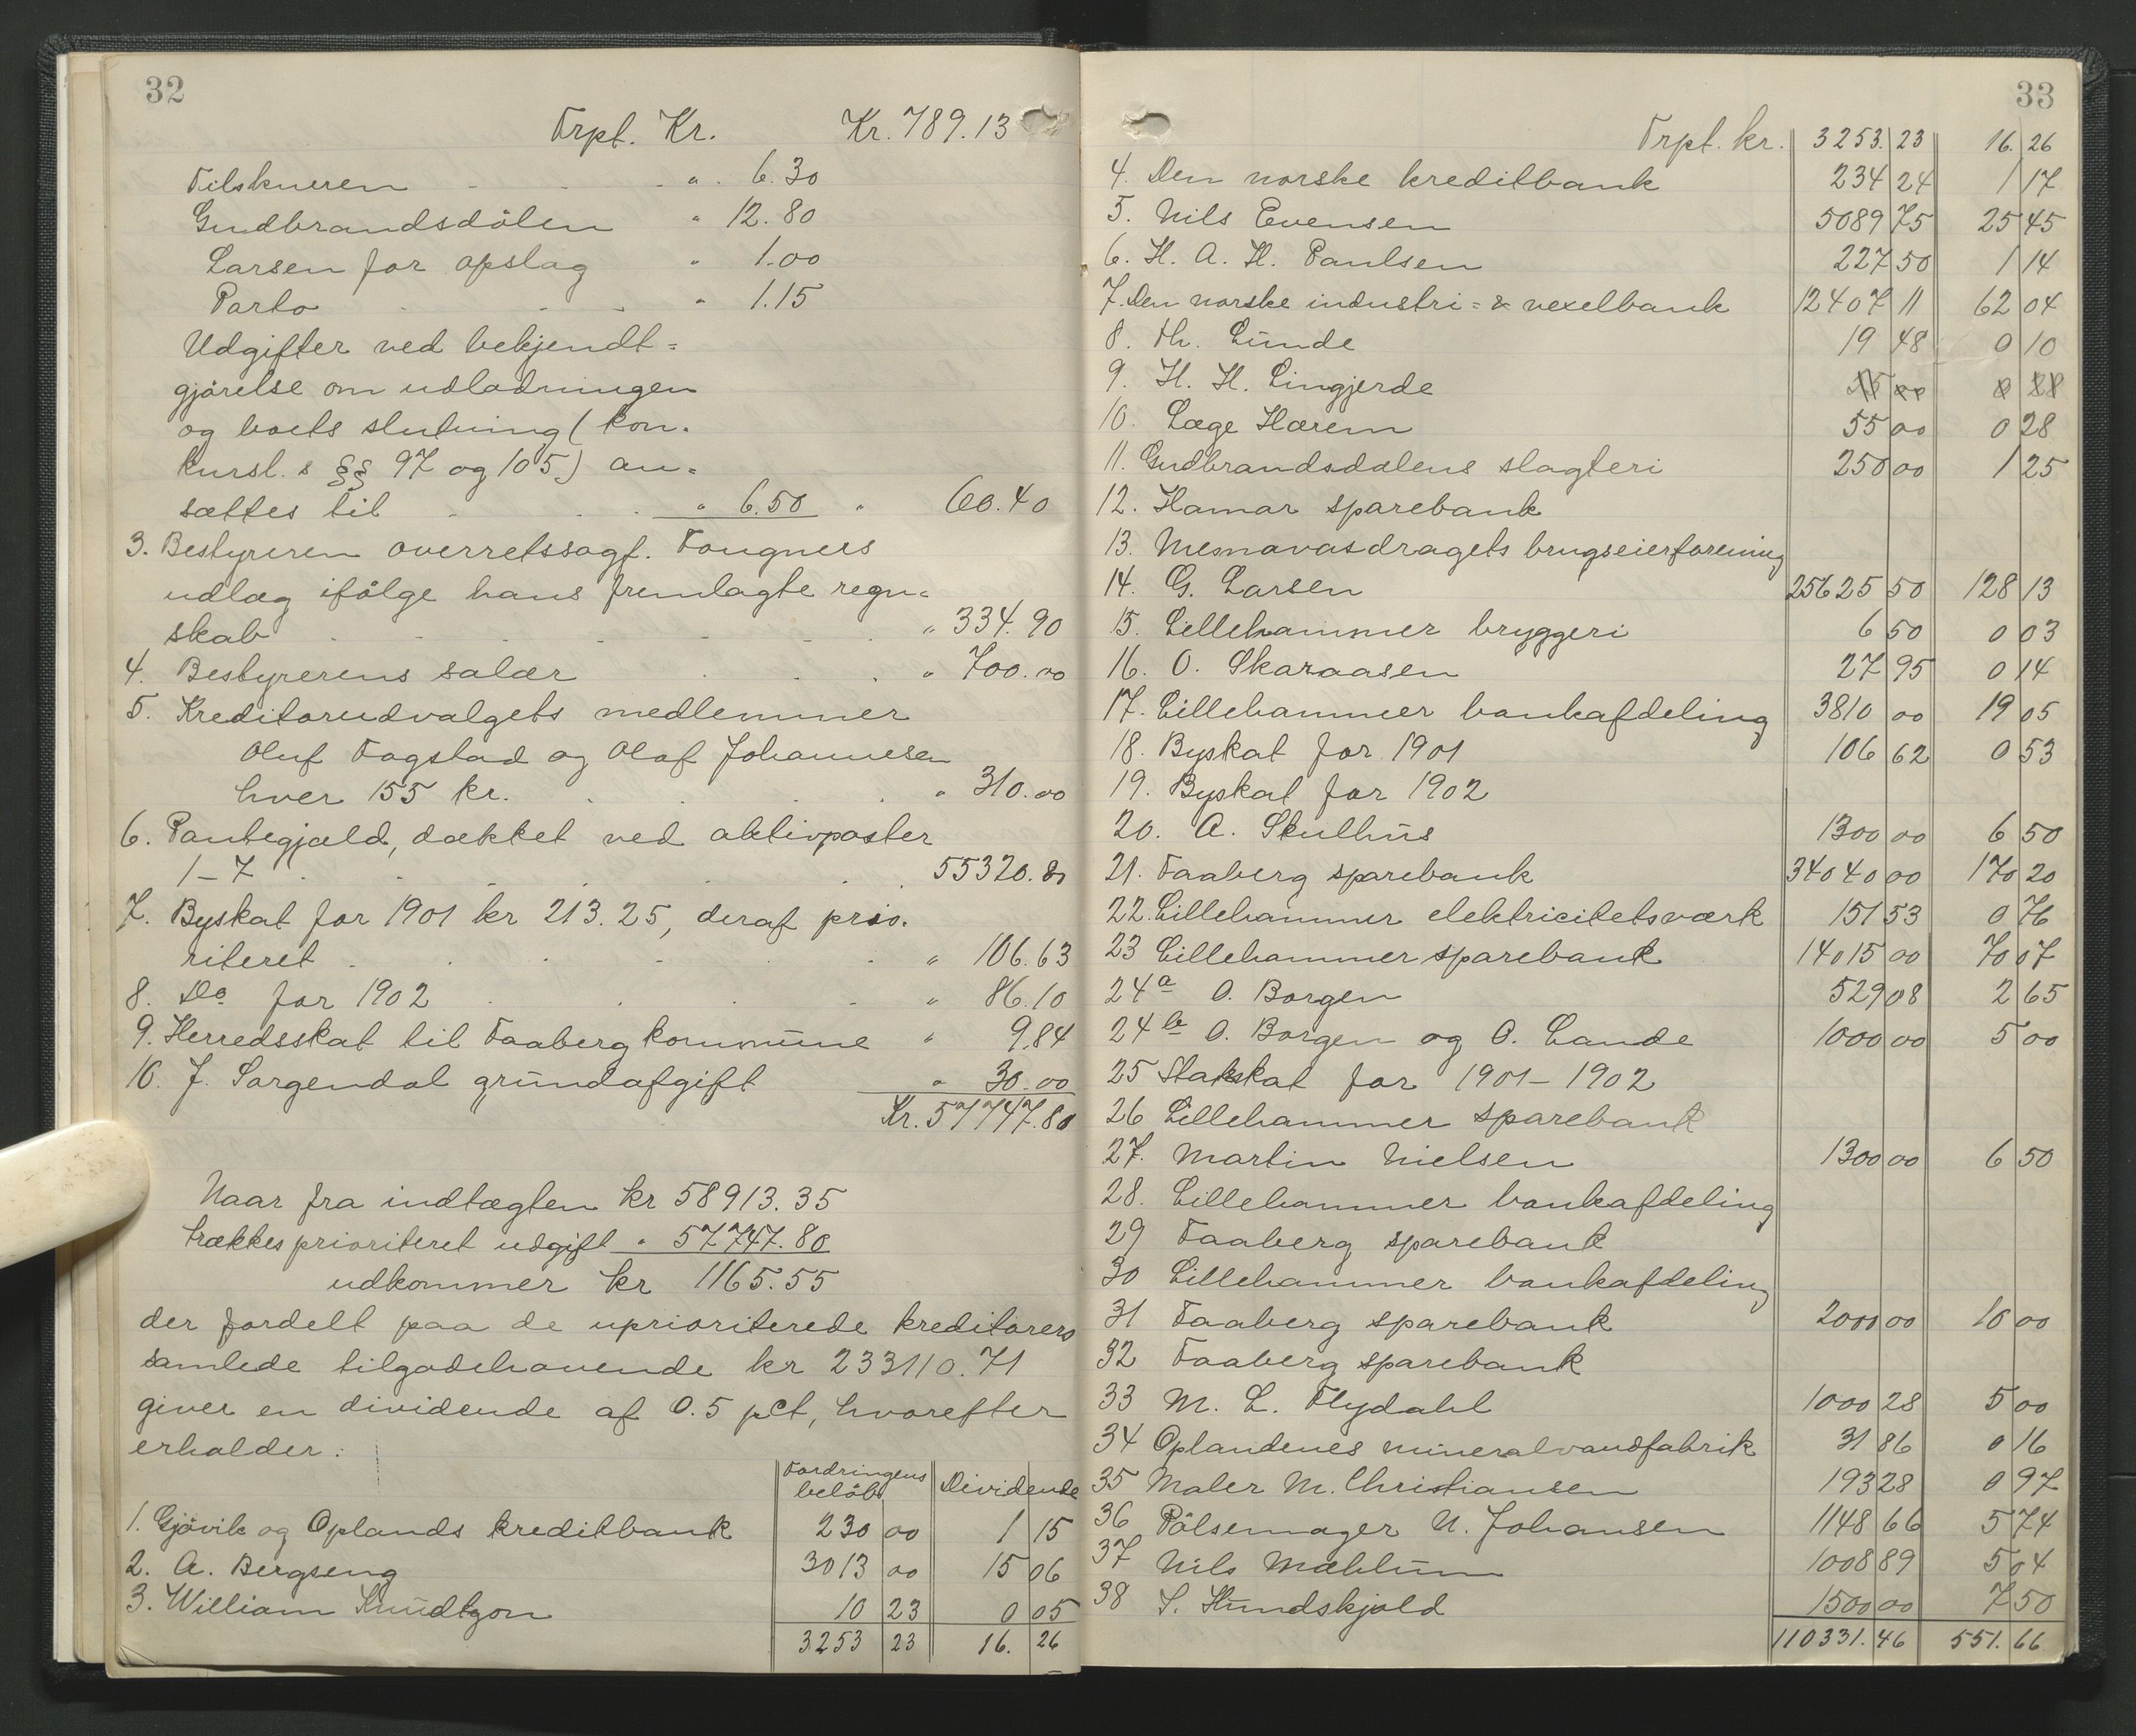 32
Trpt. Kr. Kr. 789.13
Tilskueren " 6.30
Gudbrandsdølen " 12.80
Larsen for opslag " 1.00
Porto " 1.15
Udgifter ved bekjendt=
gjørelse om udlodningen
og boets slutning (kon-
kursl.s §§ 97 og 105) an=
sættes til " 6.50 " 60.40
3. Bestyreren overretssagf. Fougners
udlæg ifølge hans fremlagte regn=
skab " 334.90
4. Bestyrerens salær " 700.00
5. Kreditorudvalgets medlemmer
Oluf Fogstad og Olaf Johannesen
hver 155 kr. " 310.00
6. Pantegjæld, dækket ved aktivposter
1-7 55320.80
7. Byskat for 1901 kr 213.25, deraf prio-
riteret " 106.63
8. Do for 1902 " 86.10
9. Herredsskat til Faaberg kommune " 9.84
10. J. Sorgendal grundafgift " 30.00
Kr. 57747.80
Naar fra indtægten kr 58913.35
trækkes prioriteret udgift " 57747.80
udkommer kr 1165.55
der fordelt paa de uprioriterede kreditorers
samlede tilgodehavende kr 233110.71
giver en dividende af 0.5 pct, hvorefter
erholder:
Fordringens beløb Dividende
1. Gjøvik og Oplands kreditbank 230 00 1 15
2. A. Bergseng 3013 00 15 06
3. William Knudtzon 10 23 0 05
3253 23 16. 26
33
Trpt. kr. 3253. 23 16. 26
4. Den norske kreditbank 234 24 1 17
5. Nils Evensen 5089 75 25 45
6. H. A. H. Paulsen 227 50 1 14
7. Den norske industri- & vexelbank 12407 11 62 04
8. Th. Lunde 19 48 0 10
9. H. H. Lingjerde
10. Læge Harem 55 00 0 28
11. Gudbrandsdalens slagteri 250 00 1 25
12. Hamar sparebank
13. Mesnavasdragets brugseierforening
14. G. Larsen 25625 50 128 13
15. Lillehammer bryggeri 6 50 0 03
16. O. Skaraasen 27 95 0 14
17. Lillehammer bankafdeling 3810 00 19 05
18. Byskat for 1901 106 62 0 53
19. Byskat for 1902
20. A. Skulhus 1300 00 6 50
21. Faaberg sparebank 34040 00 170 20
22. Lillehammer elektricitetsværk 151 53 0 76
23 Lillehammer sparebank 14015 00 70 07
24a O. Borgen 529 08 2 65
24b O. Borgen og O. Lande 1000 00 5 00
25 Statsskat for 1901-1902
26 Lillehammer sparebank
27. Martin Nielsen 1300 00 6 50
28. Lillehammer bankafdeling
29 Faaberg sparebank
30 Lillehammer bankafdeling
31 Faaberg sparebank 2000 00 10 00
32 Faaberg sparebank
33 M. L. Flydahl 1000 28 5 00
34 Oplandenes mineralvandfabrik 31 86 0 16
35 Maler M. Christiansen 193 28 0 97
36 Pølsemager N. Johansen 1148 66 5 74
37 Nils Mæhlum 1008 89 5 04
38 S. Hundskjold 1500 00 7 50
110331. 46 551. 66